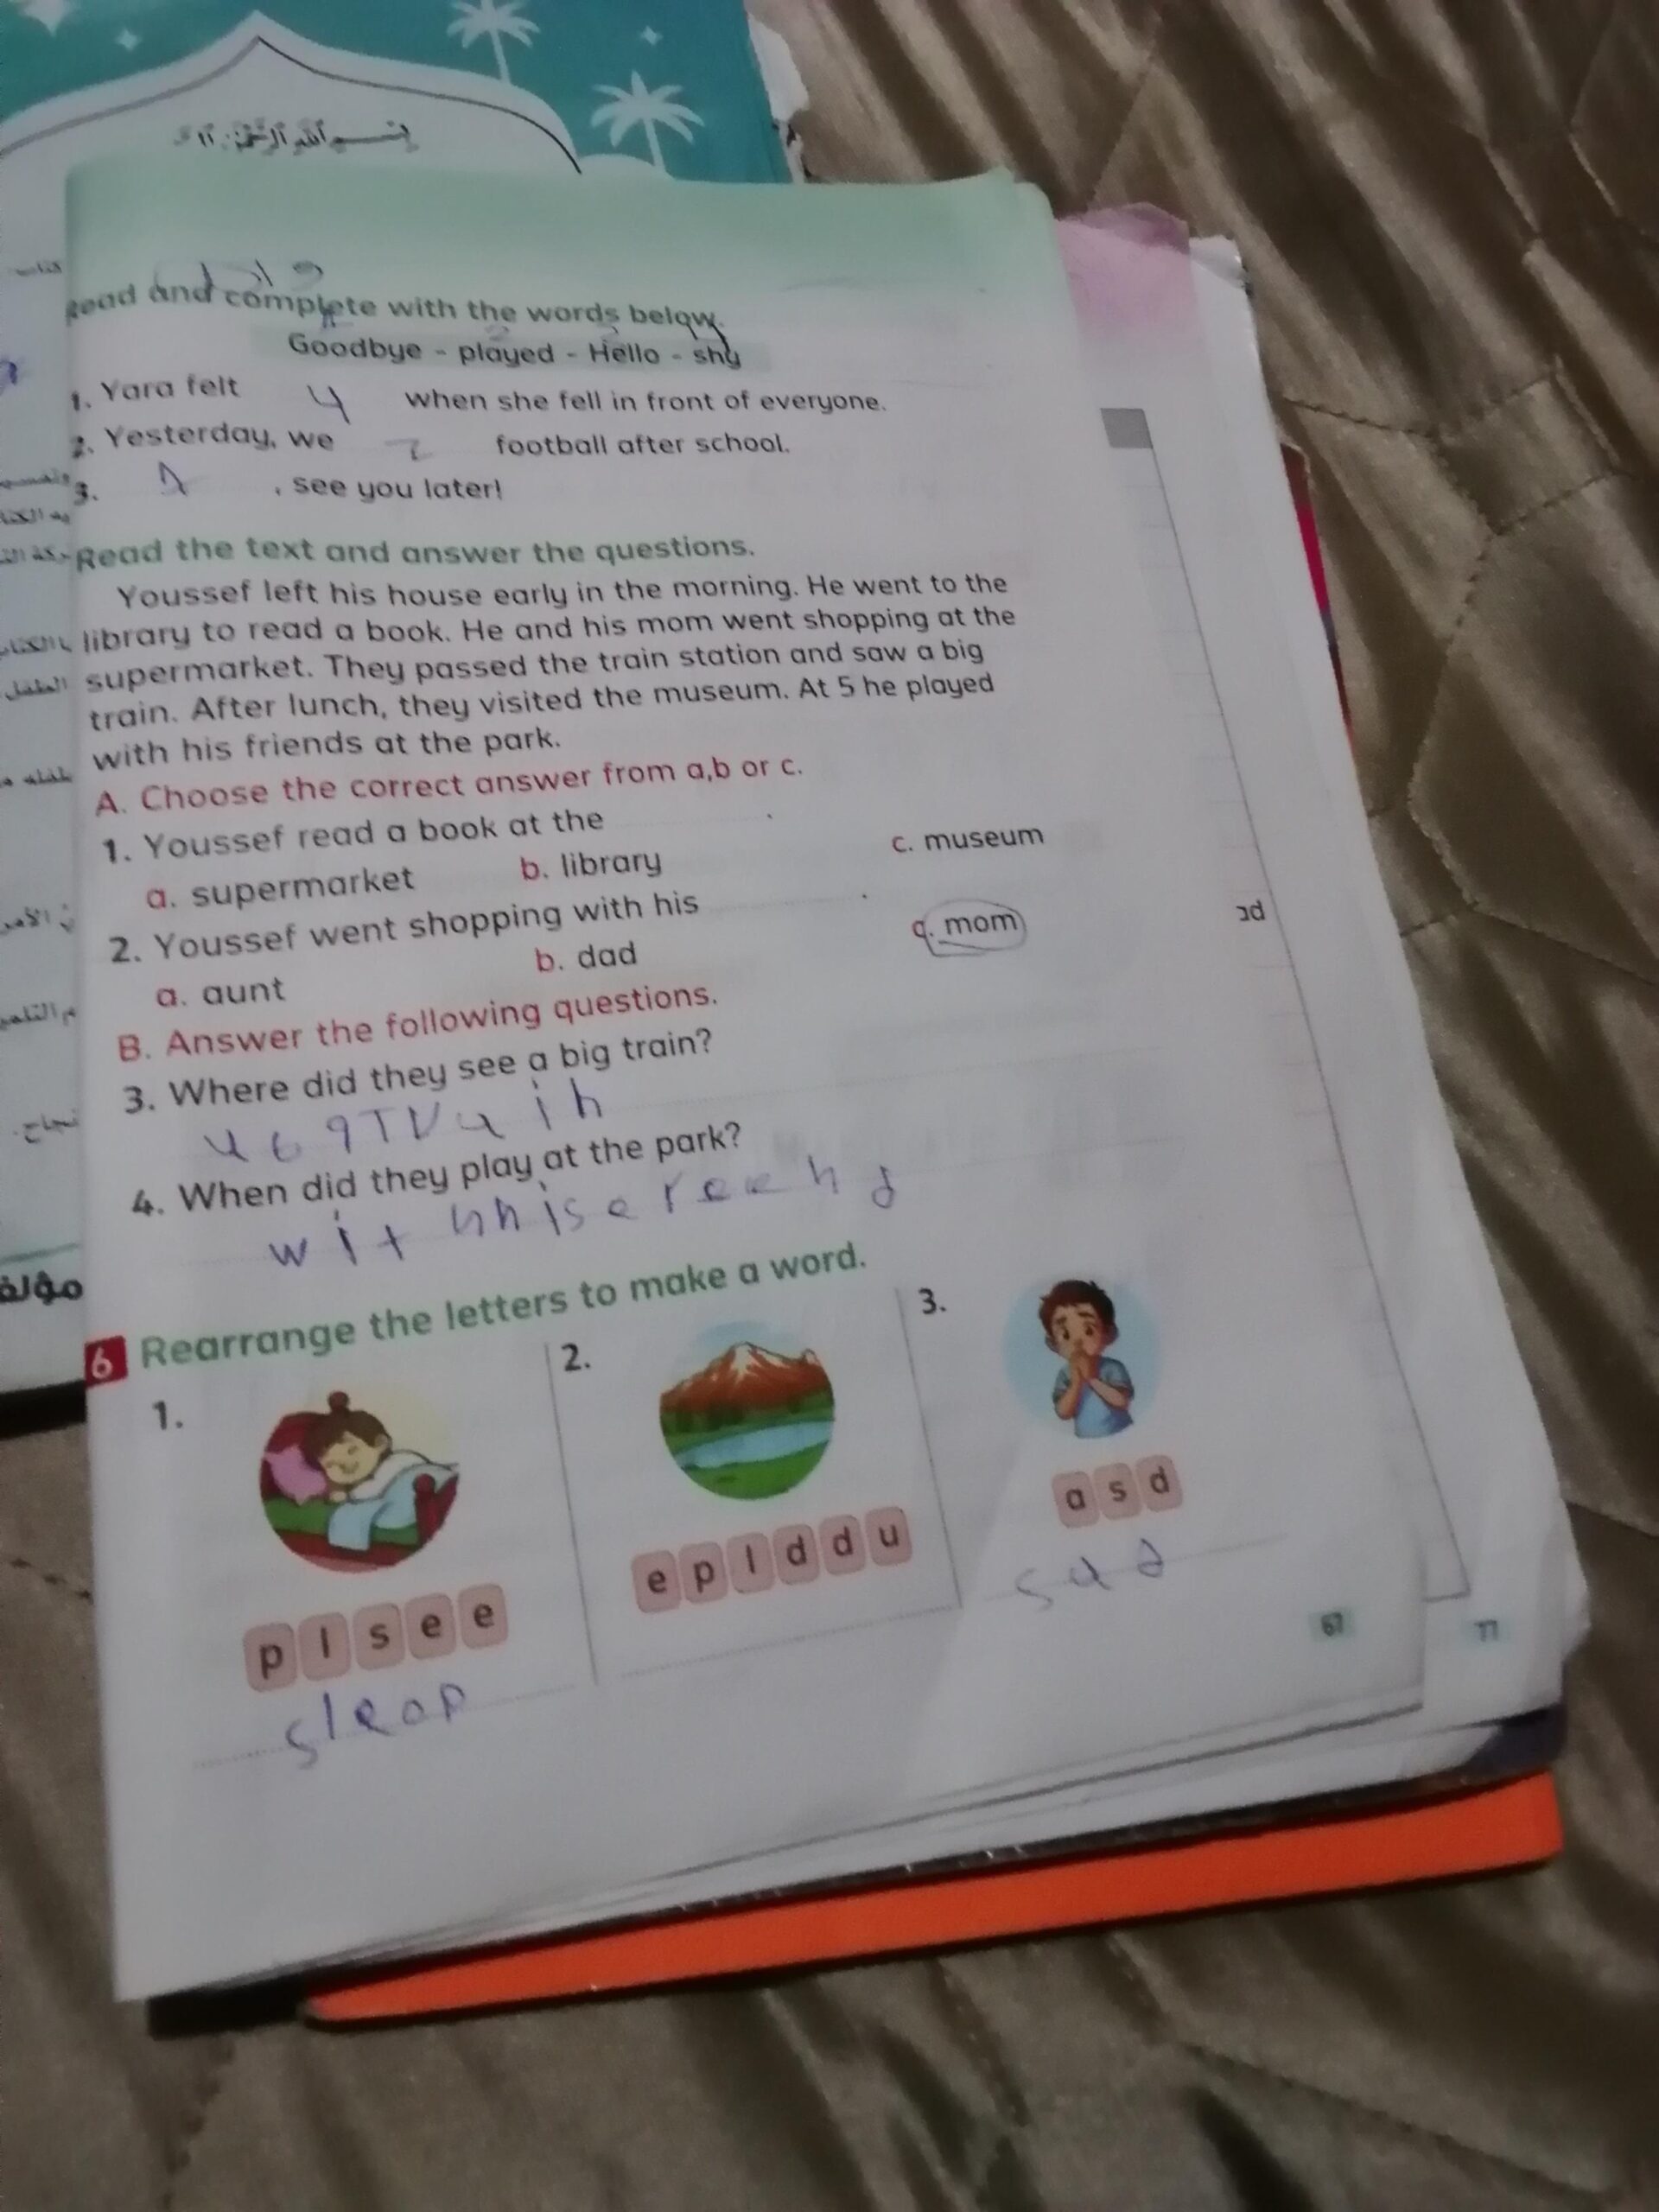 بسم الله
Read and complete with the words below.
Goodbye - played - Hello - shy
1. Yara felt 4 when she fell in front of everyone.
2. Yesterday, we 2 football after school.
3. , see you later!
Read the text and answer the questions.
Youssef left his house early in the morning. He went to the
library to read a book. He and his mom went shopping at the
supermarket. They passed the train station and saw a big
train. After lunch, they visited the museum. At 5 he played
with his friends at the park.
A. Choose the correct answer from a,b or c.
1. Youssef read a book at the .
a. supermarket b. library c. museum
2. Youssef went shopping with his .
a. aunt b. dad c. mom
B. Answer the following questions.
3. Where did they see a big train?
4. When did they play at the park?
6 Rearrange the letters to make a word.
1. 2. 3.
p l s e e
e p l d d u
a s d
sleap
sad
67
77